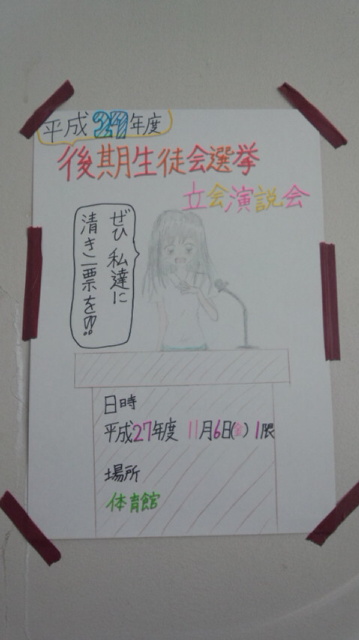 平成27年度
後期生徒会選挙
立会演説会
ぜひ私達に
清き一票を!!
日時
平成27年度 11月6日(金) 1限
場所
体育館